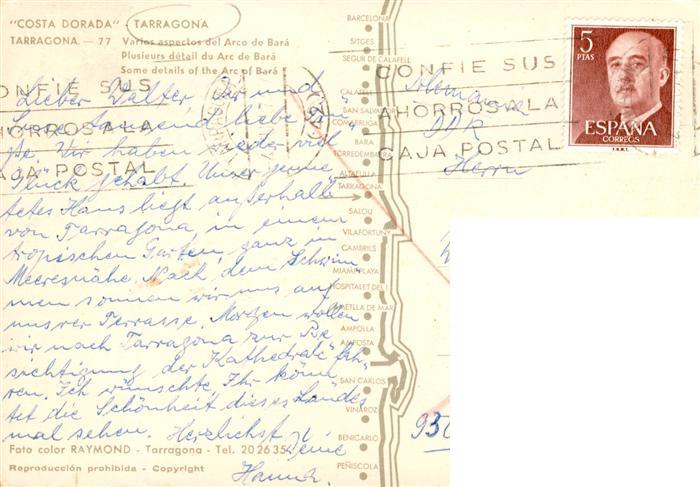 "COSTA DORADA" - TARRAGONA
TARRAGONA. - 77 Varios aspectos del Arco de Bará
Plusieurs détail du Arc de Bará
Some details of the Arc of Bará
Lieber Walter Dir und
tausend liebe
Wir haben wieder viel
Glück gehabt. Unser gemie
tetes Haus liegt außerhalb
von Tarragona, in einem
tropischen Garten, ganz in
Meeresnähe. Nach dem Schwim
men sonnen wir uns auf
unsrer Terrasse. Morgen wollen
wir nach Tarragona zur Be
sichtigung der Kathedrale fah-
ren. Ich wünschte, Ihr könn
tet die Schönheit dieses Landes
mal sehen. Herzlichst Deine
Foto color RAYMOND - Tarragona - Tel. 20 26 35
Reproducción prohibida - Copyright
CONFIE SUS
AHORROS A LA
CAJA POSTAL
BARCELONA
SITGES
SEGUR DE CALAFELL
CALAFELL
SAN SALVADOR
COMARRUGA
BARA
TORREDEMBARRA
ALTAFULLA
TARRAGONA
SALOU
VILAFORTUNY
CAMBRILS
MIAMI PLAYA
HOSPITALET DEL I.
AMETLLA DE MAR
AMPOLLA
AMPOSTA
SAN CARLOS
VINAROZ
BENICARLO
PEÑISCOLA
CONFIE SUS
AHORROS A LA
CAJA POSTAL
Alemania
DDR
Herrn
5
PTAS
ESPAÑA
CORREOS
F.N.M.T.